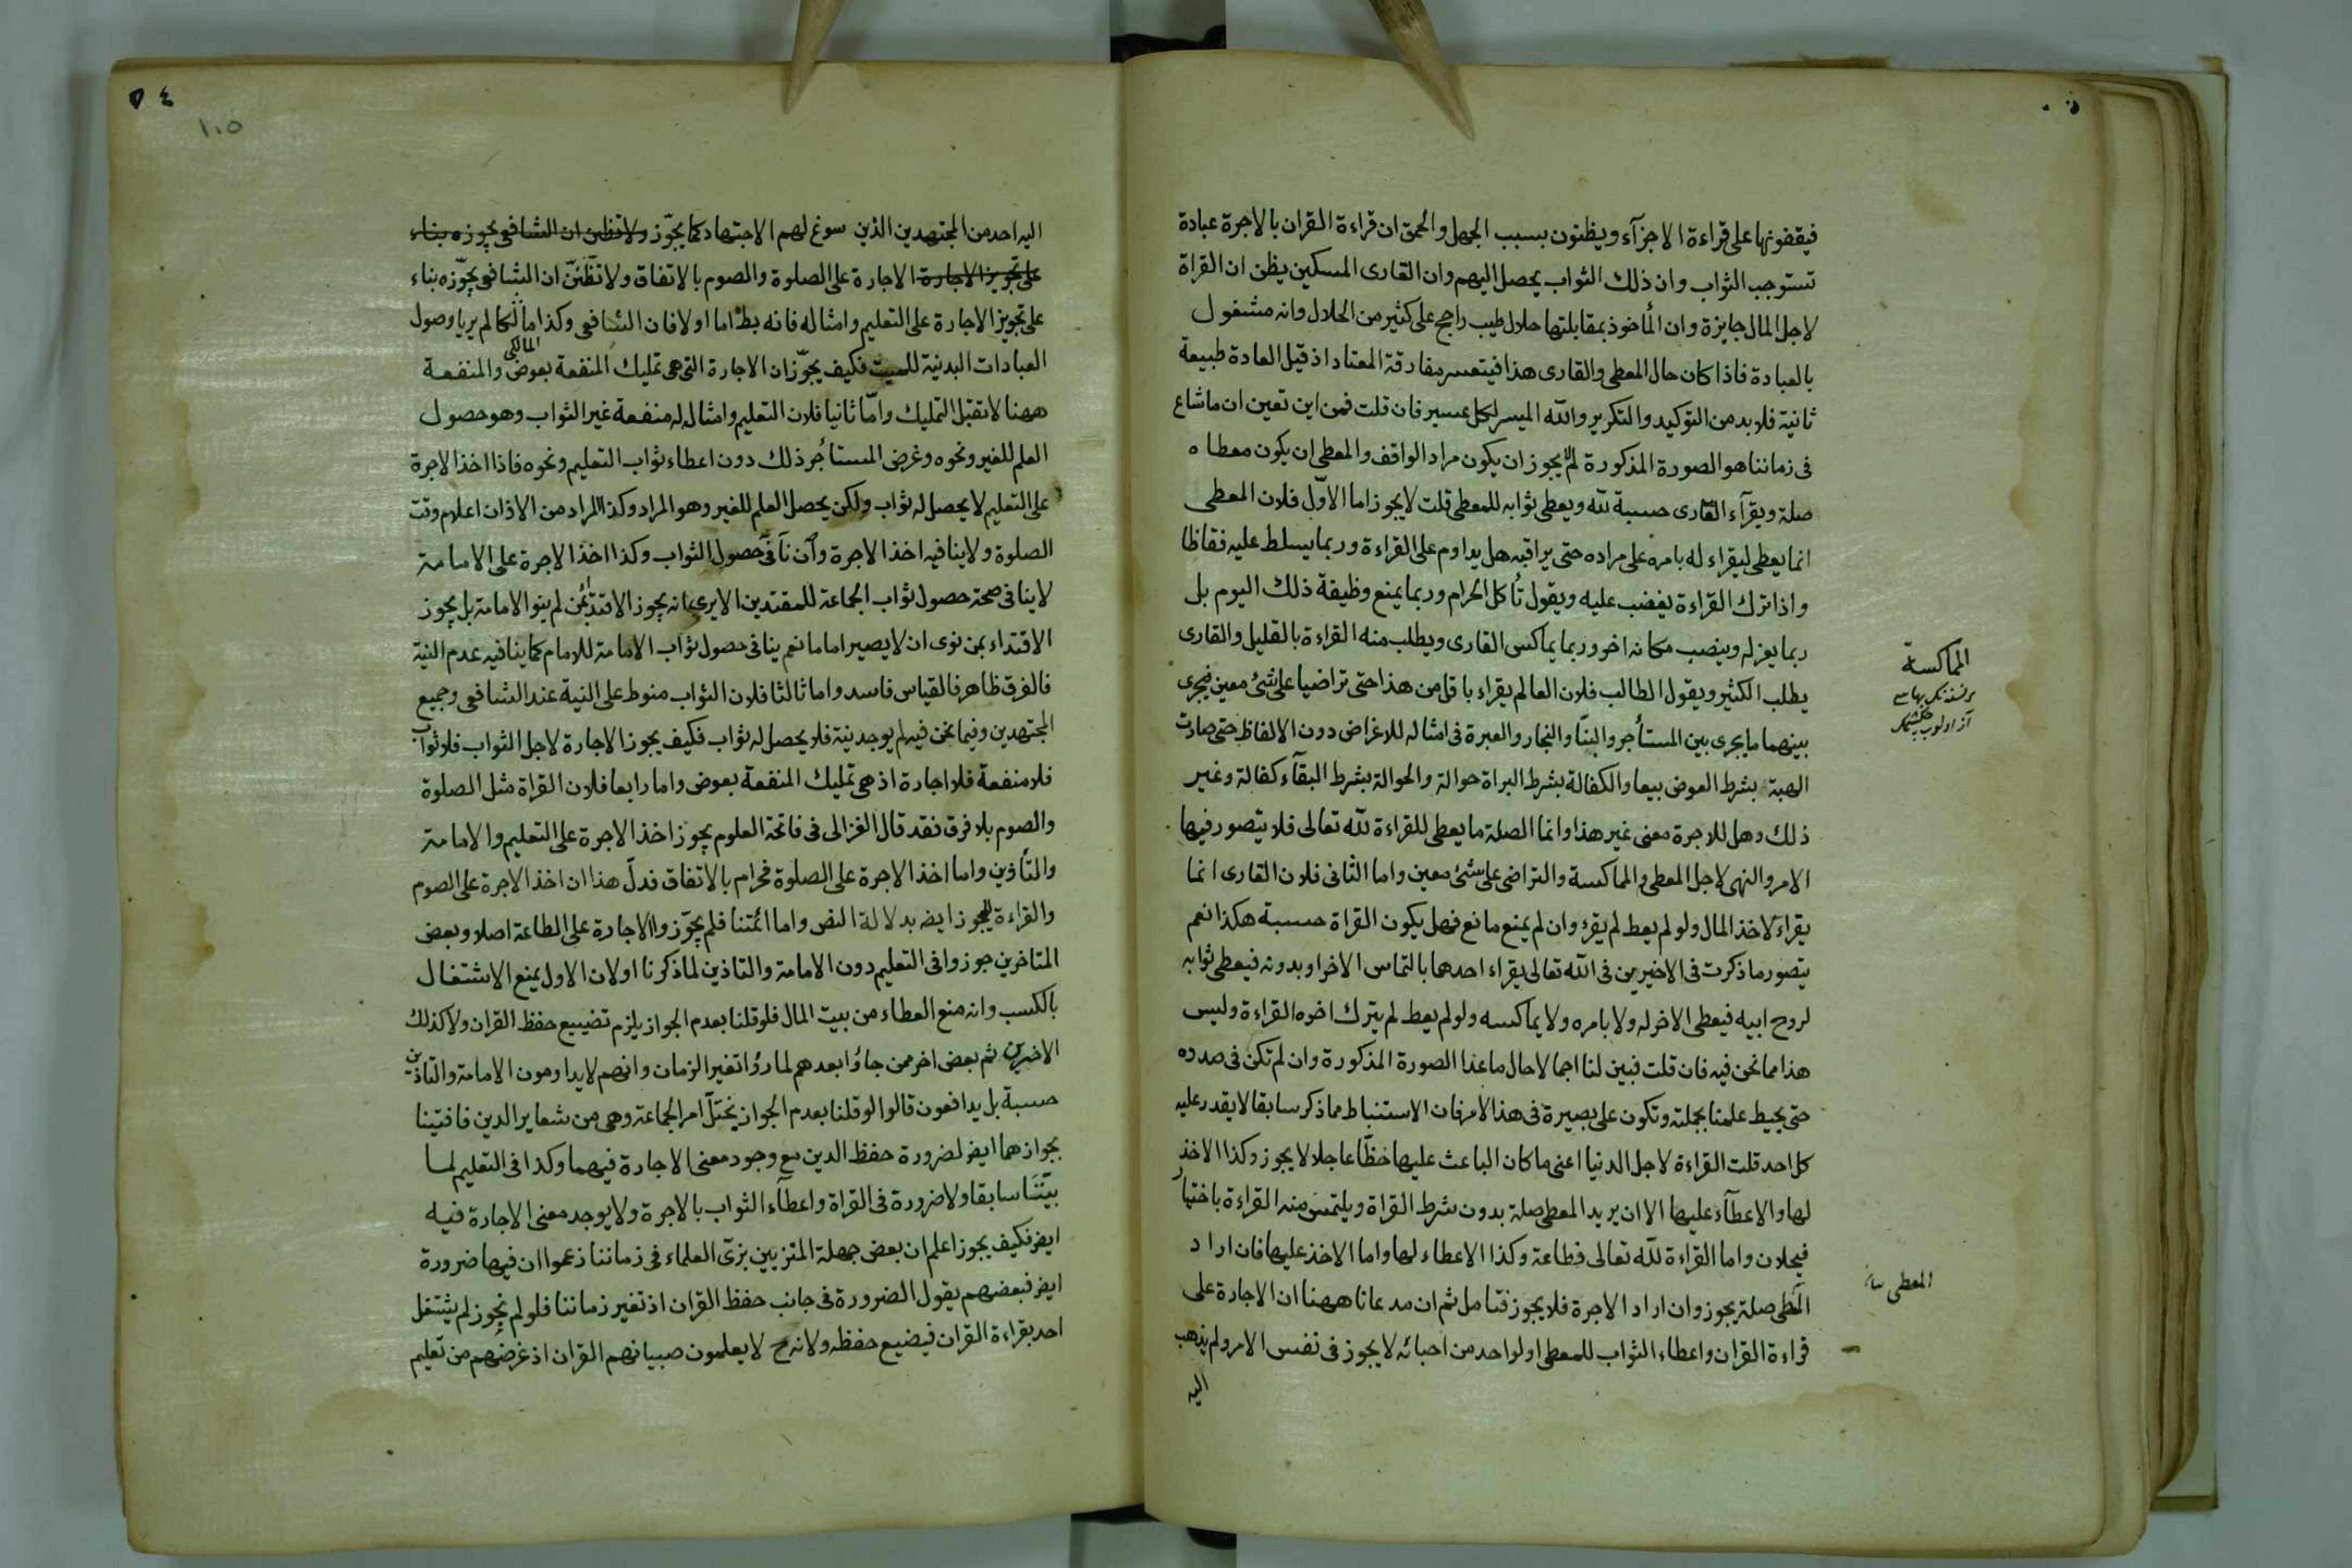 فيقفونها على قراءة الاجزآء ويظنون بسبب الجهل والحمق ان قراءة القران بالاجرة عبادة
تستوجب الثواب وان ذلك الثواب يحصل اليهم وان القارى المسكين يظن ان القراة
لاجل المال جايزة وان المأخوذ بمقابلتها حلال طيب راجح على كثير من الحلال وانه مشغول
بالعبادة فاذا كان حال المعطى والقارى هذا فيتعسر مفارقة المعتاد اذ قيل العادة طبيعة
ثانية فلا بد من التوكيد والتكرير والله الميسر لكل عسير فان قلت فمن اين تعين ان ما شاع
فى زماننا هو الصورة المذكورة لم لا يجوز ان يكون مراد الواقف والمعطى ان يكون معطاه
صلة ويقرآء القارى حسبة لله ويعطى ثوابه للمعطى قلت لا يجوز اما الاوّل فلان المعطى
انما يعطى ليقراء له بامره على مراده حتى يراقبه هل يداوم على القراءة وربما يسلط عليه فقاظا
واذا ترك القراءة يغضب عليه ويقول تأكل الحرام وربما يمنع وظيفة ذلك اليوم بل
ربما يعزله وينصب مكانه اخر وربما يماكس القارى ويطلب منه القراءة بالقليل والقارى
يطلب الكثير ويقول الطالب فلان العالم يقراء باقل من هذا حتى تراضيا على شئ معين فيجرى
بينهما ما يجرى بين المستأجر والبنّا والنجار والعبرة فى امثاله للاغراض دون الالفاظ حتى صارت
الهبة بشرط العوض بيعا والكفالة بشرط البراة حوالة والحوالة بشرط البقآء كفالة وغير
ذلك وهل للاجرة معنى غير هذا وانما الصلة ما يعطى للقراءة لله تعالى فلا يتصور فيها
الامر والنهى لاجل المعطى والمماكسة والتراضى على شئ معين واما الثانى فلان القارى انما
يقراء لاخذ المال ولو لم يعط لم يقرء وان لم يمنع مانع فهل يكون القراة حسبة هكذا نعم
يتصور ما ذكرت فى الاخيرين فى الله تعالى يقراء احدهما بالتماس الاخر او بدونه فيعطى ثوابه
لروح ابيه فيعطى الاخر له ولا يامره ولا يماكسه ولو لم يعط لم يترك اخوه القراءة وليس
هذا مما نحن فيه فان قلت فبين لنا اجمالا حال ما عدا الصورة المذكورة وان لم تكن فى صدده
حتى يحيط علمنا بجملته وتكون على بصيرة فى هذا الامر فان الاستنباط مما ذكر سابقا لا يقدر عليه
كل احد قلت القراءة لاجل الدنيا اعنى ما كان الباعث عليها حظّا عاجلا لا يجوز وكذا الاخذ
لها والاعطآء عليها الا ان يريد المعطى صلة بدون شرط القراة ويلتمس منه القراءة باختيار
فيحلان واما القراءة لله تعالى فطاعة وكذا الاعطاء لها واما الاخذ عليها فان اراد
المعطى صلة يجوز وان اراد الاجرة فلا يجوز فتامل ثم ان مدعانا ههنا ان الاجارة على
قراءة القران واعطاء الثواب للمعطى او لواحد من احبائه لا يجوز فى نفس الامر ولم يذهب
اليه
المماكسة
المعطى
٥٤
١٠٥
اليه احد من المجتهدين الذين سوغ لهم الاجتهاد كما يجوّز ولا تظنن ان الشافعى يجوزه بناء
على تجويز الاجارة الاجارة على الصلوة والصوم بالاتفاق ولا تظنّنّ ان الشافعى يجوّزه بناء
على تجويز الاجارة على التعليم وامثاله فانه بط اما اولا فان الشافعى وكذا مالكا لم يريا وصول
المالكى
العبادات البدنية للميت فكيف يجوّزان الاجارة التى هى تمليك المنفعة بعوض والمنفعة
ههنا لا تقبل التمليك وامّا ثانيا فلان التعليم وامثاله له منفعة غير الثواب وهو حصول
العلم للغير ونحوه وغرض المستأجر ذلك دون اعطاء ثواب التعليم ونحوه فاذا اخذ الاجرة
على التعليم لا يحصل له ثواب ولكن يحصل العلم للغير وهو المراد وكذا المراد من الاذان اعلام وقت
الصلوة ولا ينافيه اخذ الاجرة وان نافى حصول الثواب وكذا اخذ الاجرة على الامامة
لا ينافى صحة حصول ثواب الجماعة للمقتدين الا يرى انه يجوز الاقتداء بمن لم ينو الامامة بل يجوز
الاقتداء بمن نوى ان لا يصير اماما نعم ينافى حصول ثواب الامامة للامام كما ينافيه عدم النية
فالفرق ظاهر فالقياس فاسد واما ثالثا فلان الثواب منوط على النية عند الشافعى وجميع
المجتهدين وفيما نحن فيه لم يوجد نية فلا يحصل له ثواب فكيف يجوز الاجارة لاجل الثواب فلا ثواب
فلا منفعة فلا اجارة اذ هى تمليك المنفعة بعوض واما رابعا فلان القراة مثل الصلوة
والصوم بلا فرق فقد قال الغزالى فى فاتحة العلوم يجوز اخذ الاجرة على التعليم والامامة
والتأذين واما اخذ الاجرة على الصلوة فحرام بالاتفاق فدلّ هذا ان اخذ الاجرة على الصوم
والقراءة لا يجوز ايضا بدلالة النص واما ائمتنا فلم يجوّزوا الاجارة على الطاعة اصلا وبعض
المتاخرين جوزوا فى التعليم دون الامامة والتاذين لما ذكرنا اولا ن الاول يمنع الاشتغال
بالكسب وانه منع العطاء من بيت المال فلو قلنا بعدم الجواز يلزم تضييع حفظ القران ولا كذلك
الاخيرين ثم بعض اخر ممن جاؤا بعدهم لما رؤا تغير الزمان وانهم لا يداومون الامامة والتاذين
حسبة بل يدافعون قالوا لو قلنا بعدم الجواز يختلّ امر الجماعة وهى من شعاير الدين فافتينا
بجوازهما ايضا لضرورة حفظ الدين مع وجود معنى الاجارة فيهما وكذا فى التعليم لما
بيّنّا سابقا ولا ضرورة فى القراة واعطآء الثواب بالاجرة ولا يوجد معنى الاجارة فيه
ايضا فكيف يجوز اعلم ان بعض جهلة المتزيين بزىّ العلماء فى زماننا زعموا ان فيها ضرورة
ايضا فبعضهم يقول الضرورة فى جانب حفظ القران اذ تغير زماننا فلو لم نجوز لم يشتغل
احد بقراءة القران فيضيع حفظه ولانه ح لا يعلمون صبيانهم القران اذ غرضهم من تعليم